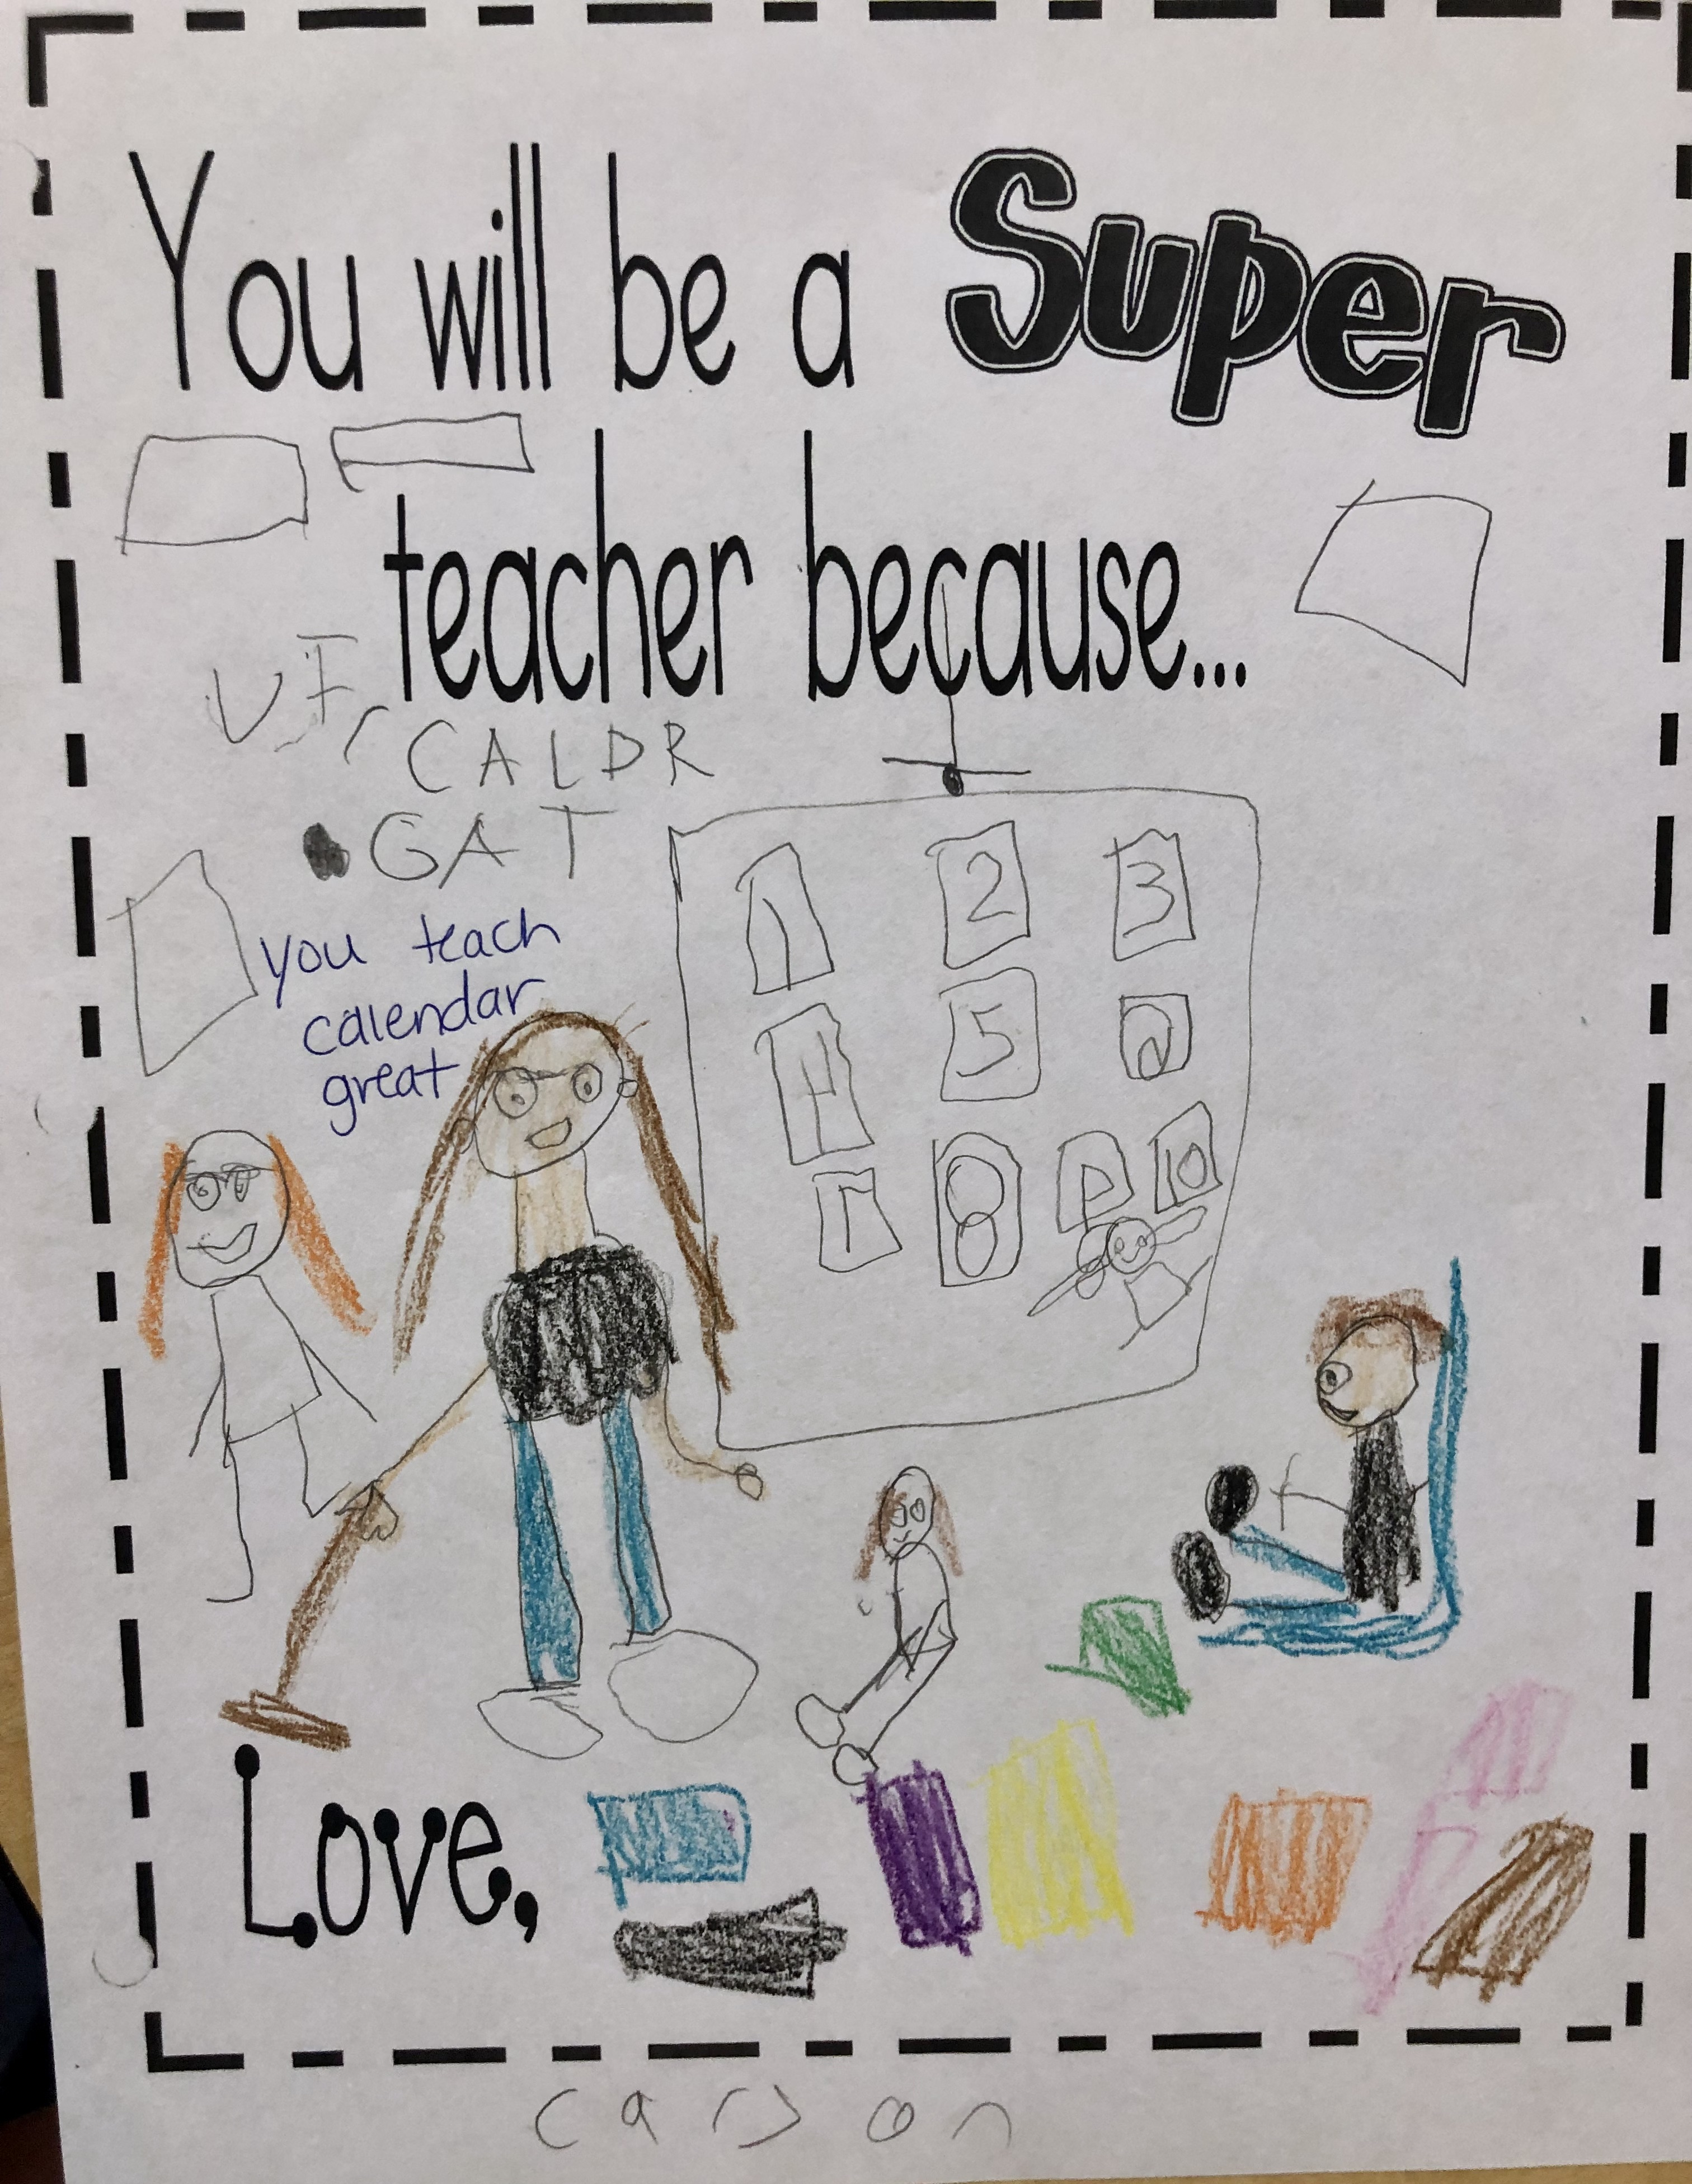 You will be a Super
teacher because...
CALDR
GAT
you teach
calendar
great
1 2 3
4 5
8 10
Love,
carson